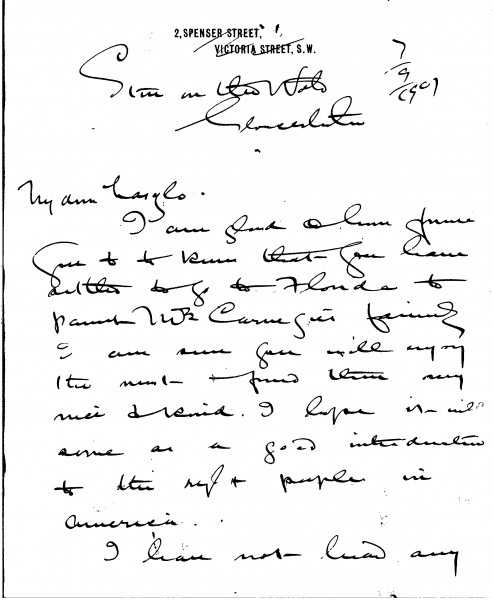 2, SPENSER STREET,
VICTORIA STREET, S.W.
7/9/1907
Stow on the Wold
Gloucester
My dear Laszlo.
I am glad to have from
you & to know that you have
settled to go to Florida to
paint Mrs Carnegie's family
I am sure you will enjoy
the most & find them very
nice & kind. I hope it will
some as a good introduction
to the right people in
America.
I have not heard any